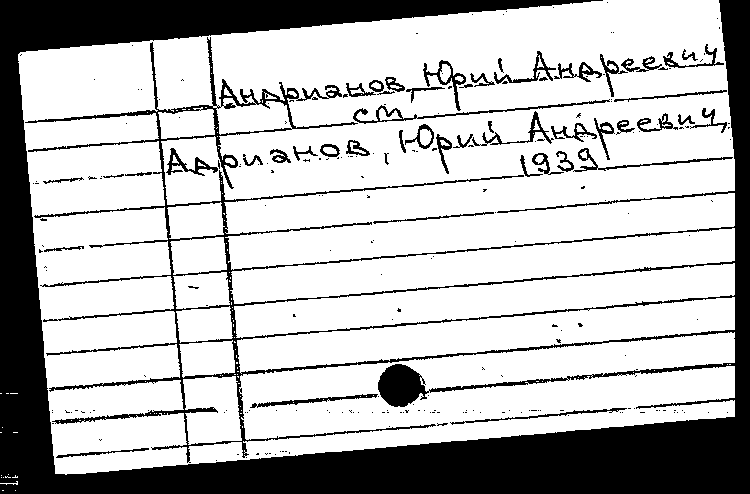 Андрианов, Юрий Андреевич
см.
Адрианов, Юрий Андреевич,
1939